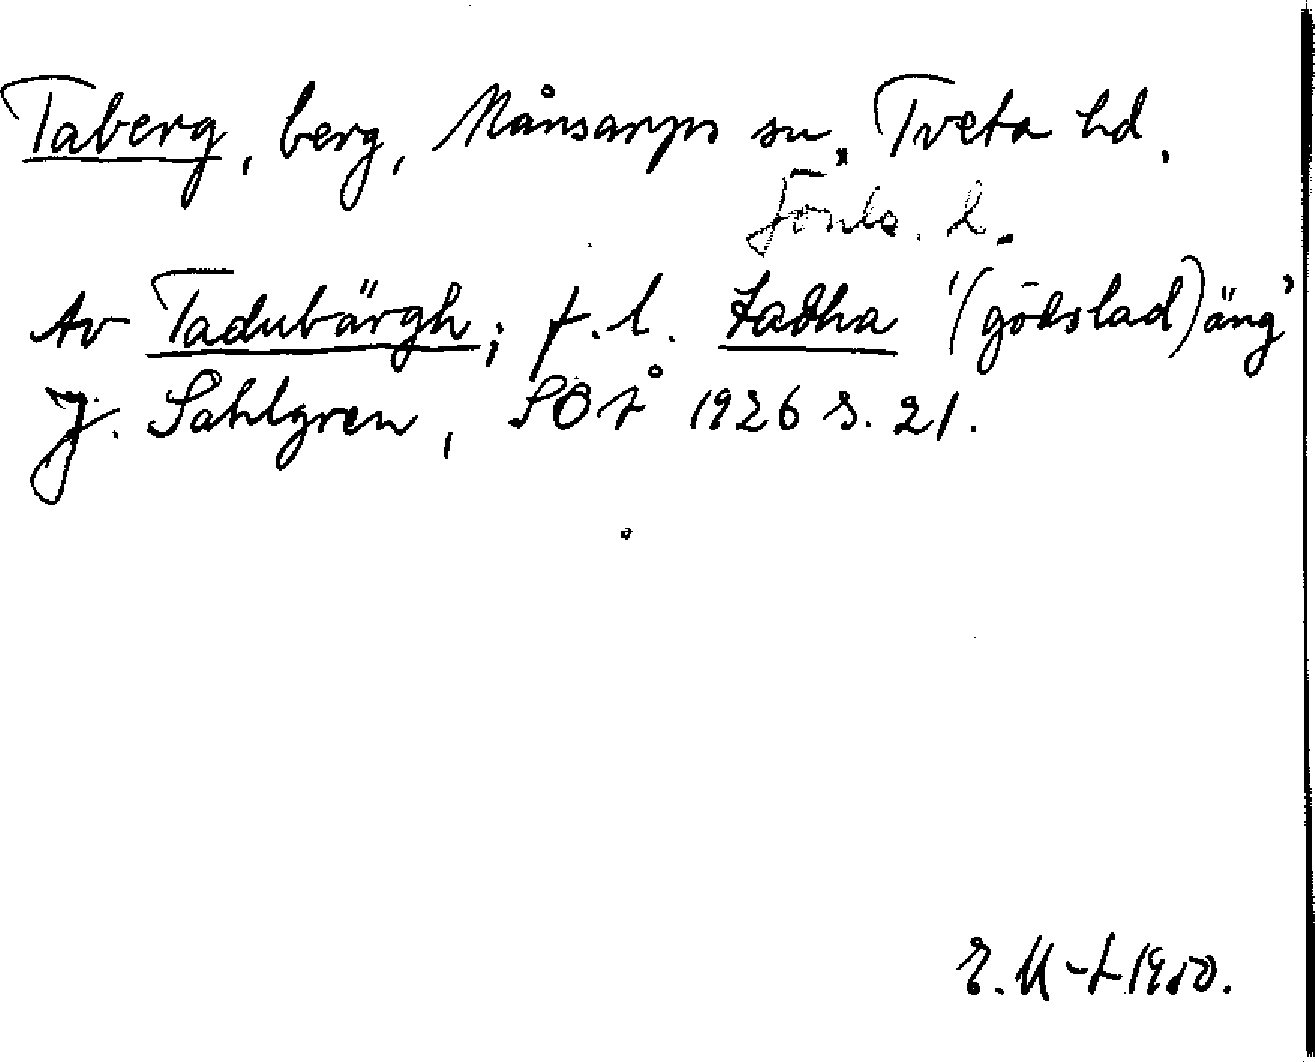 Taberg, berg, Månsarps sn, Tveta hd,
Jönk. l.
Av Tadubärgh; f.l. tadha '(gödslad) äng'
J. Sahlgren, SOÅ 1926 s. 21.
1950.